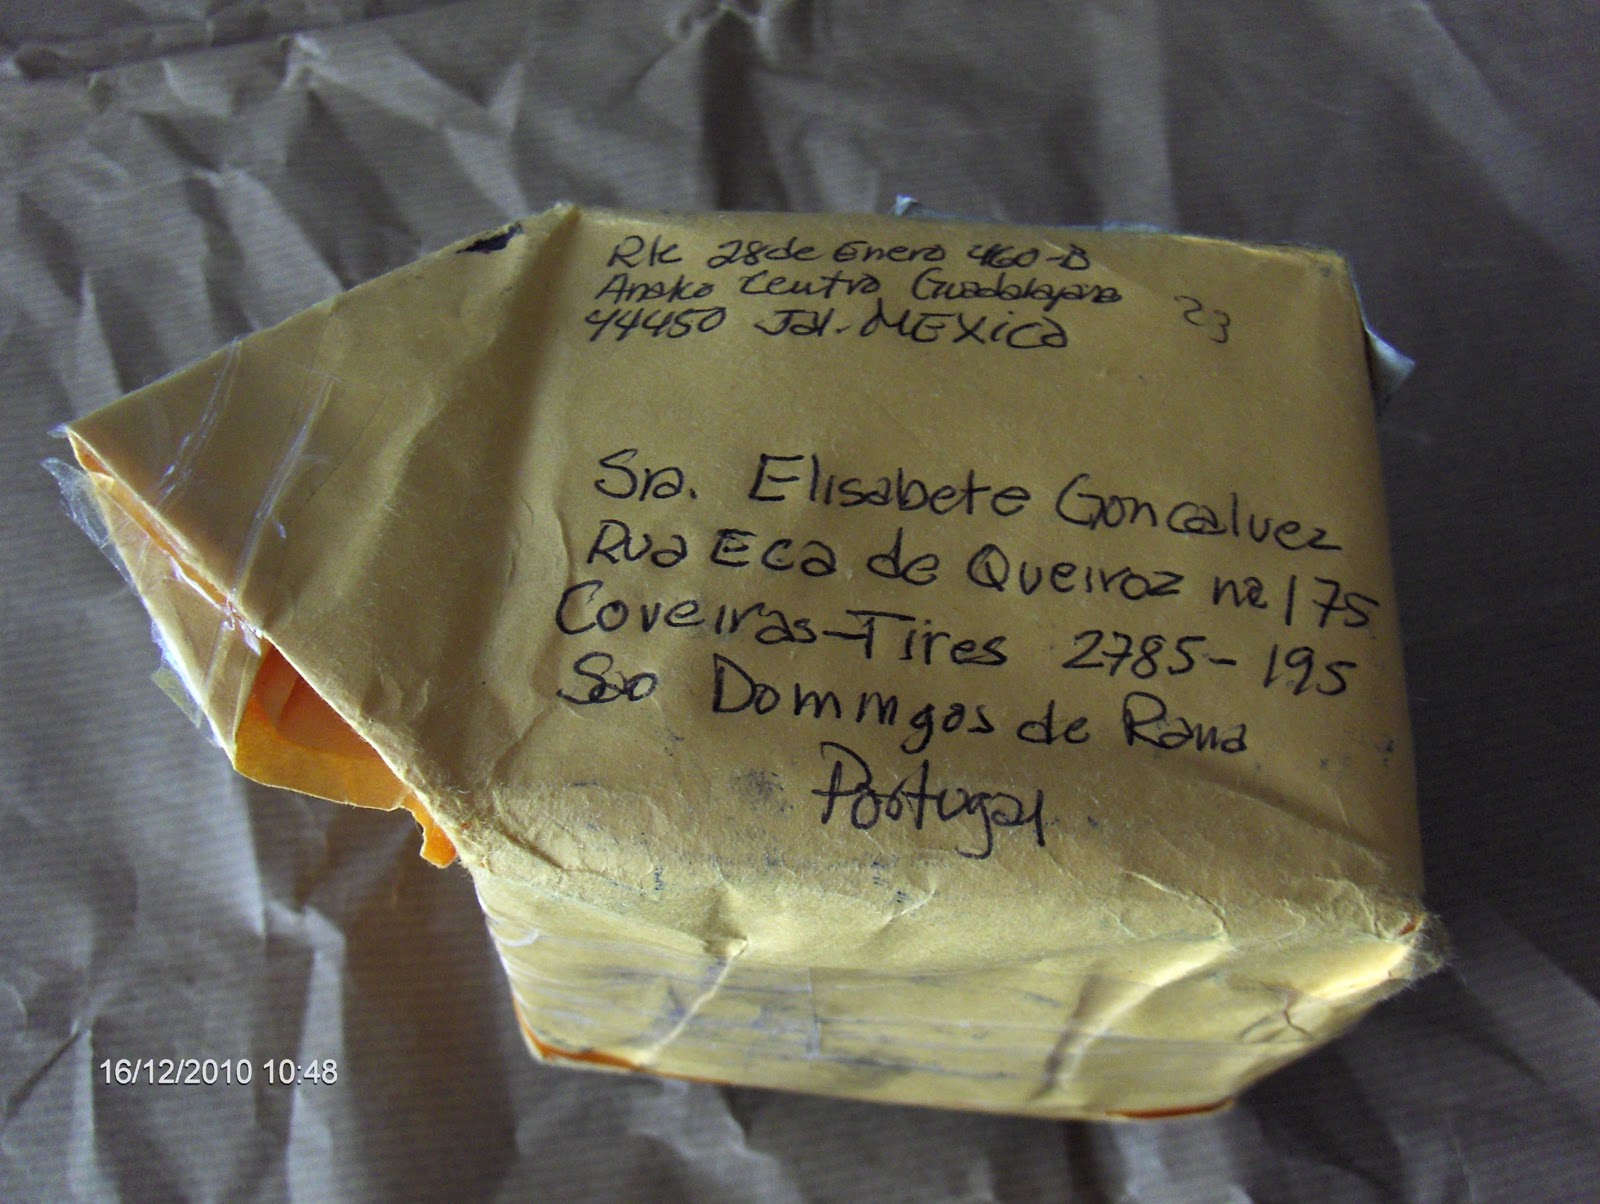 Rte 28 de Enero 460-B
Analco Centro Guadalajara
44450 Jal. MEXica
23
Sra. Elisabete Goncalvez
Rua Eca de Queiroz nº 175
Coveiras-Tires 2785-195
Sao Dommgos de Rana
Portugal
16/12/2010 10:48